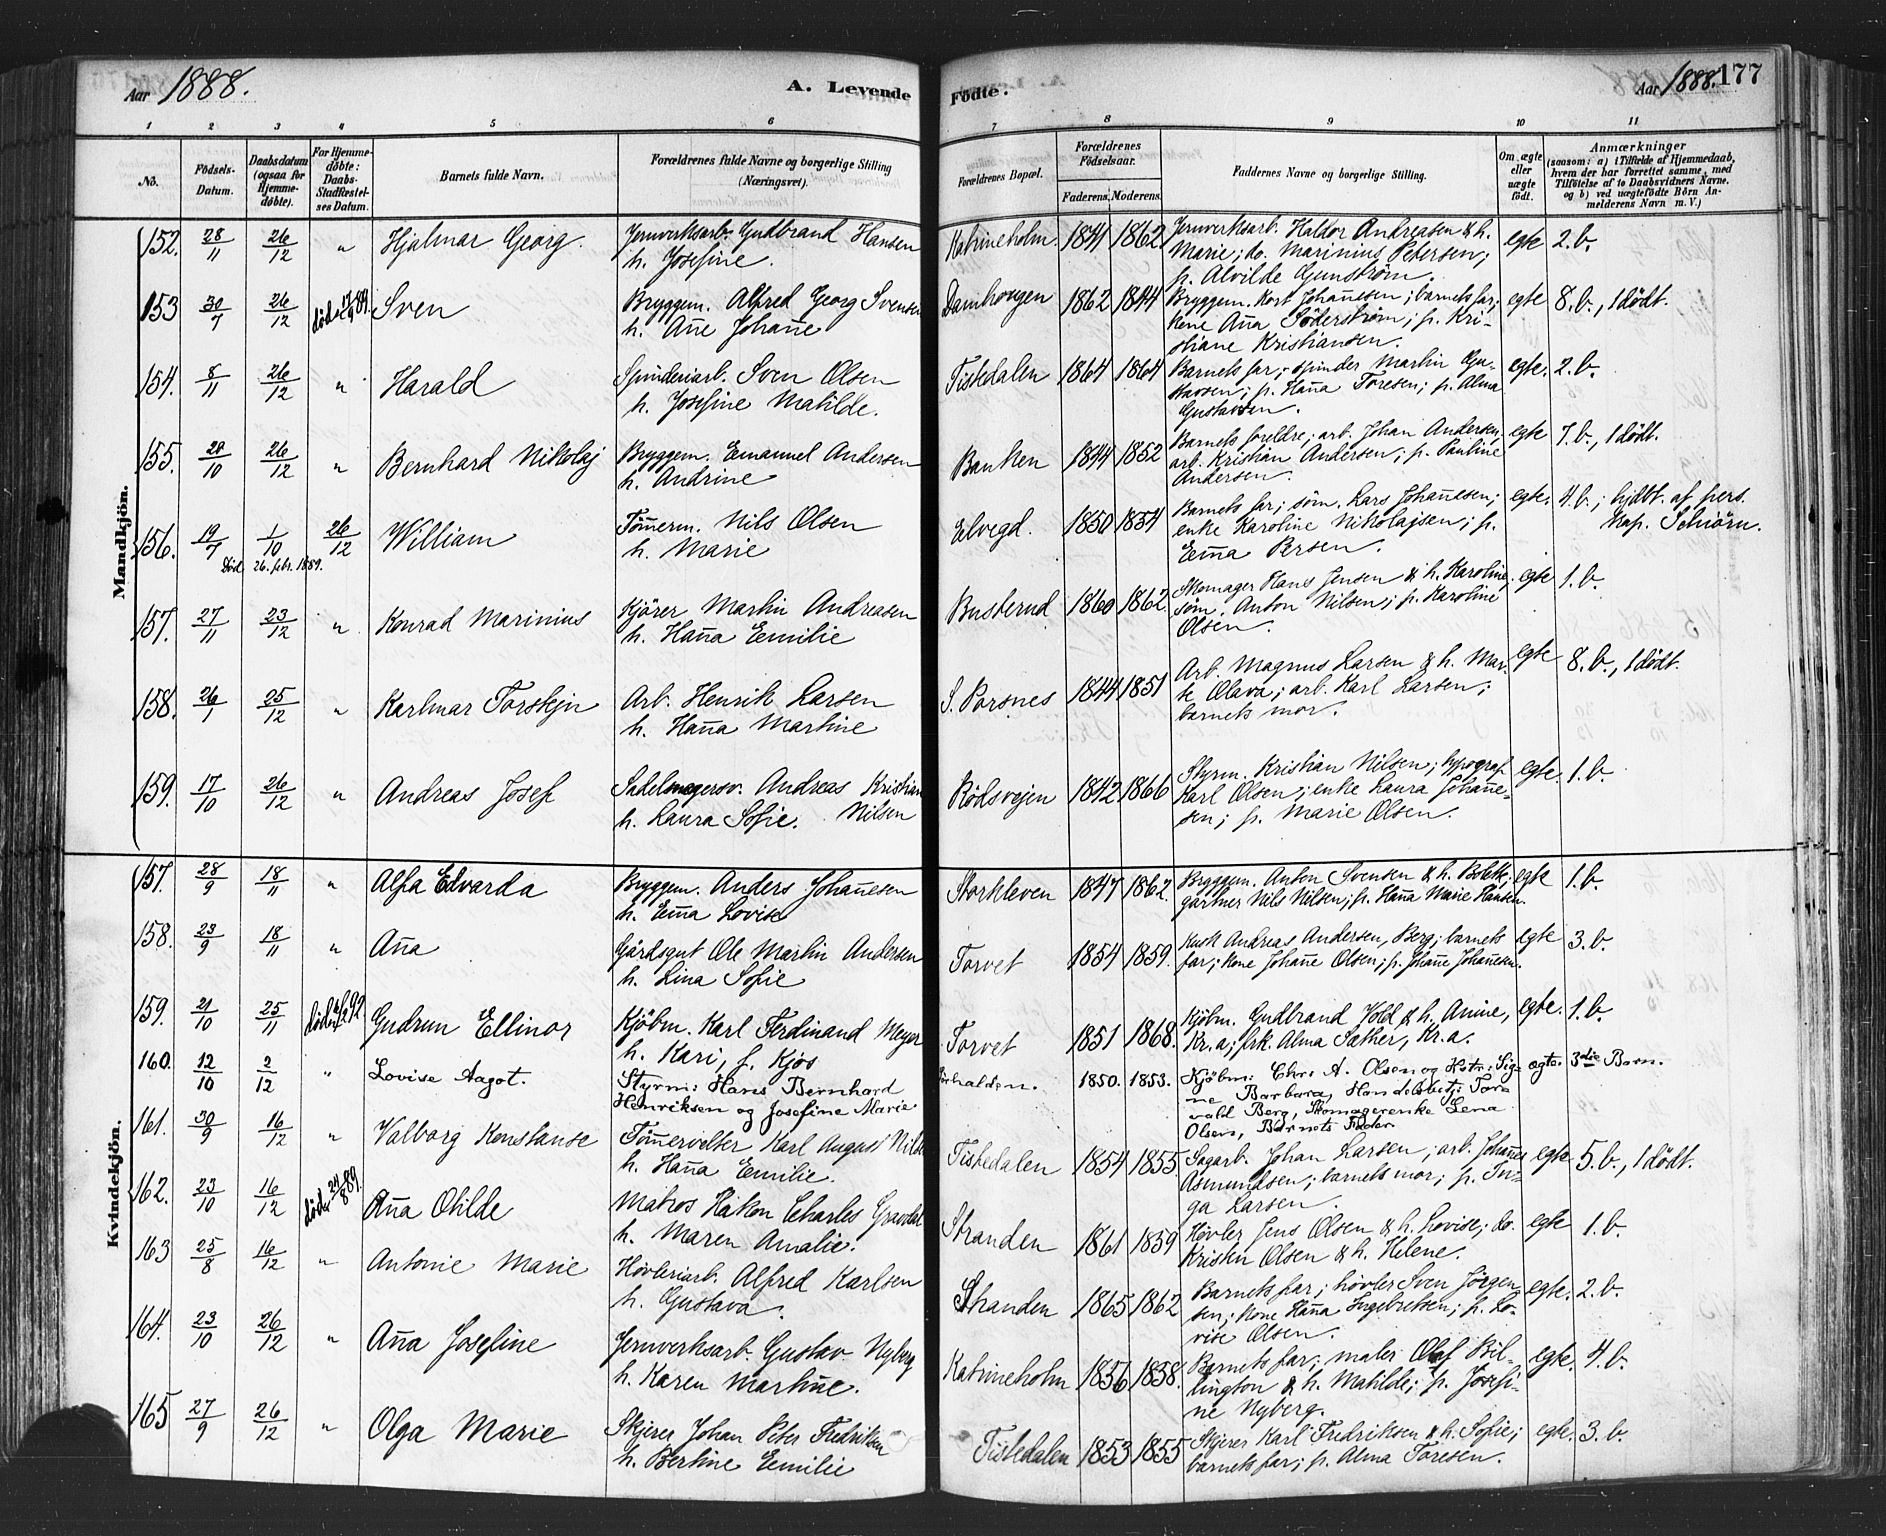 Aar 1888.
A. Levende
Födte.
Aar 1888.
177
1 2 3 4 5 6 7 8 9 10 11
No.
Födsels-
Datum.
Daabsdatum
(ogsaa for
Hjemme-
döbte).
For Hjemme-
döbte:
Daabs-
Stadfæstel-
ses Datum.
Barnets fulde Navn.
Forældrenes fulde Navne og borgerlige Stilling
(Næringsvei).
Forældrenes Bopæl.
Forældrenes
Födselsaar.
Faderens. Moderens.
Faddernes Navne og borgerlige Stilling.
Om ægte
eller
uægte
födt.
Anmærkninger
(saasom: a) i Tilfælde af Hjemmedaab,
hvem der har forrettet samme, med
Tilföielse af to Daabsvidners Navne,
og b) ved uægtefödte Börn An-
melderens Navn m. V.)
Mandkjön.
152. 28/11 26/12 " Hjalmar Georg. Jernverksarb. Gudbrand Hansen
h. Josefine.
Katrineholm. 1841 1862 Jernverksarb. Haldor Andreasen & h.
Marie; do. Marinius Petersen;
p. Alvilde Gunström.
egte 2. b.
153 30/7 26/12 död Sven Bryggem. Alfred Georg Svensen
h. Añe Johañe
Damhovgen 1862 1844 Bryggem. Kort Johañesen; barnets far;
kone Aña Söderström; p. Kri-
stiane Kristiansen.
egte 8. b., 1 dödt.
154. 8/11 26/12 " Harald Spinderiarb. Sven Olsen
h. Josefine Matilde.
Tistedalen 1864 1864 Barnets far; spinder Martin Gu-
stavsen; p. Haña Toresen; p. Alma
Gustavsen.
egte. 2. b.
155. 28/10 26/12 " Bernhard Nikolaj Bryggem. Emanuel Andersen
h. Andrine
Banken 1844 1852 Barnets foreldre; arb. Johan Andersen,
arb. Kristian Andersen; p. Pauline
Andersen.
egte 7. b., 1 dödt.
156. 19/7 1/10 26/12 William Tömerm. Nils Olsen
h. Marie
Död 26. febr. 1889.
Elvegd. 1850 1854 Barnets far; söm. Lars Johañesen;
enke Karoline Nikolajsen; p.
Ema Persen.
egte. 4. b.; hjdbt. af pers.
kap. Schiörn.
157. 27/11 23/12 " Konrad Marinius Kjörer Martin Andreasen
h. Haña Emilie
Busterud 1860 1862. Skomager Hans Jensen & h. Karoline,
söm. Anton Nilsen; p. Karoline
Olsen.
egte 1. b.
158. 26/1 25/12 " Karlmar Torstejn Arb. Henrik Larsen
h. Haña Martine
S. Porsnes 1844 1851 Arb. Magnus Larsen & h. Mar-
te Olava; arb. Karl Larsen;
barnets mor.
egte 8. b., 1 dödt.
159. 17/10 26/12 " Andreas Josef Sadelmagersv. Andreas Kristian
h. Laura Sofie. Nilsen
Rödsvejen 1842. 1866 Styrm. Kristian Nilsen; typograf
Karl Olsen; enke Laura Johañe-
sen; p. Marie Olsen.
egte. 1. b.
Kvindekjön.
157. 28/9 18/11 " Alfa Edvarda Bryggem. Anders Johañesen
h. Ema Lovise
Storkleven 1847 1862. Bryggem. Anton Svensen & h. Bolette;
gartner Nils Nilsen; p. Haña Marie Hansen.
egte 1. b.
158. 23/9 18/11 " Aña Gårdsgut Ole Martin Andersen
h. Lina Sofie
Torvet 1854 1859. Kusk Andreas Andersen, Berg; barnets
far; kone Johañe Olsen; p. Johañe Johañesen.
egte 3. b.
159. 21/10 25/11 död Gudrun Ellinor Kjöbm. Karl Ferdinand Meyer
h. Kari, f. Kjos
Torvet 1851 1868. Kjöbm. Gudbrand Vold & h. Anine,
Kr.a; frk. Alma Sæther, Kr.a.
egte. 1. b.
160. 12/10 2/12 " Lovise Aagot. Styrm: Hans Bernhard
Henriksen og Josefine Marie
1850. 1853. Kjöbm: Chr. A. Olsen og Hstr: Sig-
ne Barbara, Handelsbetj: Tor-
vald Berg, Skomagerenke Lena
Olsen, Barnets Fader
ægte. 3die Barn.
161. 30/9 16/12 " Valborg Konstanse Tömervelter Karl August Nils
h. Haña Emilie.
Tistedalen 1854 1855 Sagarb. Johan Larsen; arb. Johañes
Asmundsen; barnets mor; p. In-
ga Larsen.
egte 5. b., 1 dödt.
162. 23/10 16/12 död Aña Otilde Matros Håkon Charles Gravdal
h. Maren Amalie.
Stranden 1861 1859 Hövler Jens Olsen & h. Lovise; do.
Kristen Olsen & h. Helene.
egte 1. b.
163 25/8 16/12 " Antonie Marie Hövleriarb. Alfred Karlsen
h. Gustava.
Stranden 1865 1862 Barnets far; hövler Sven Jörgen-
sen; kone Haña Ingebretsen; p. Lo-
vise Olsen.
egte. 2. b.
164. 23/10 26/12 " Aña Josefine Jernverksarb. Gustav Nyberg
h. Karen Martine.
Katrineholm 1856 1858. Barnets far; maler Olaf Bil-
lington & h. Matilde; p. Josefi-
ne Nyberg.
egte. 4. b.
165 27/9 26/12 " Olga Marie Skjerer Johan Peter Fredriksen
h. Bertine Emilie
Tistedalen 1853 1855 Skjerer Karl Fredriksen & h. Sofie;
barnets far; p. Alma Toresen.
egte. 3. b.